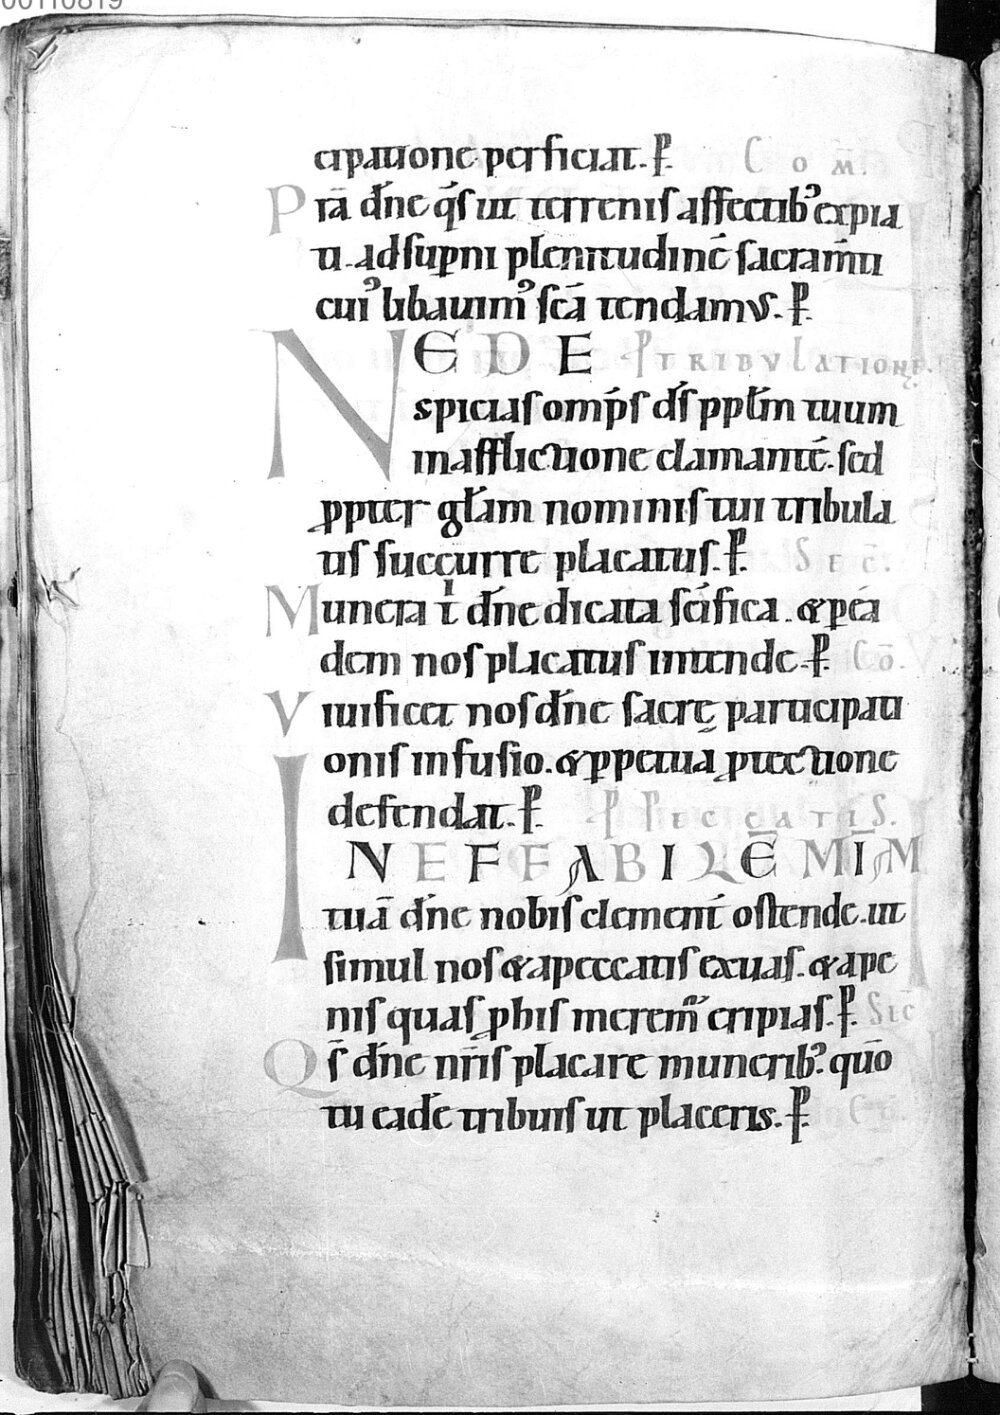 00110819
cipatione perficiat. ꝑ Com̄.
Prā dn̄e q̄s ut terrenis affectib; expia
ti. ad supni plenitudinē sacram̄ti
cui' libauim' scā tendamus. ꝑ
NE DE ꝑ TRIBVLATIONE.
spicias omp̄s ds̄ pplm̄ tuum
in afflictione clamantē. sed
ꝓpter glām nominis tui tribula
tis succurre placatus. ꝑ SEC̄.
Munera t̄ dn̄e dicata scīfica. & p eā
dem nos placatus intende. ꝑ Cō.
Viuificet nos dn̄e sacrę participati
onis infusio. & ꝑpetua ꝓtectione
defendat. ꝑ ꝑ PECCATIS.
INEFFABILĒ MĪAM
tuā dn̄e nobis clement̄ ostende. ut
simul nos & a peccatis exuas. & a pe
nis quas ꝓ his merem̄ eripias. ꝑ SEC̄
Qs̄ dn̄e nr̄is placare munerib;. quō
tu eadē tribuis ut placeris. ꝑ